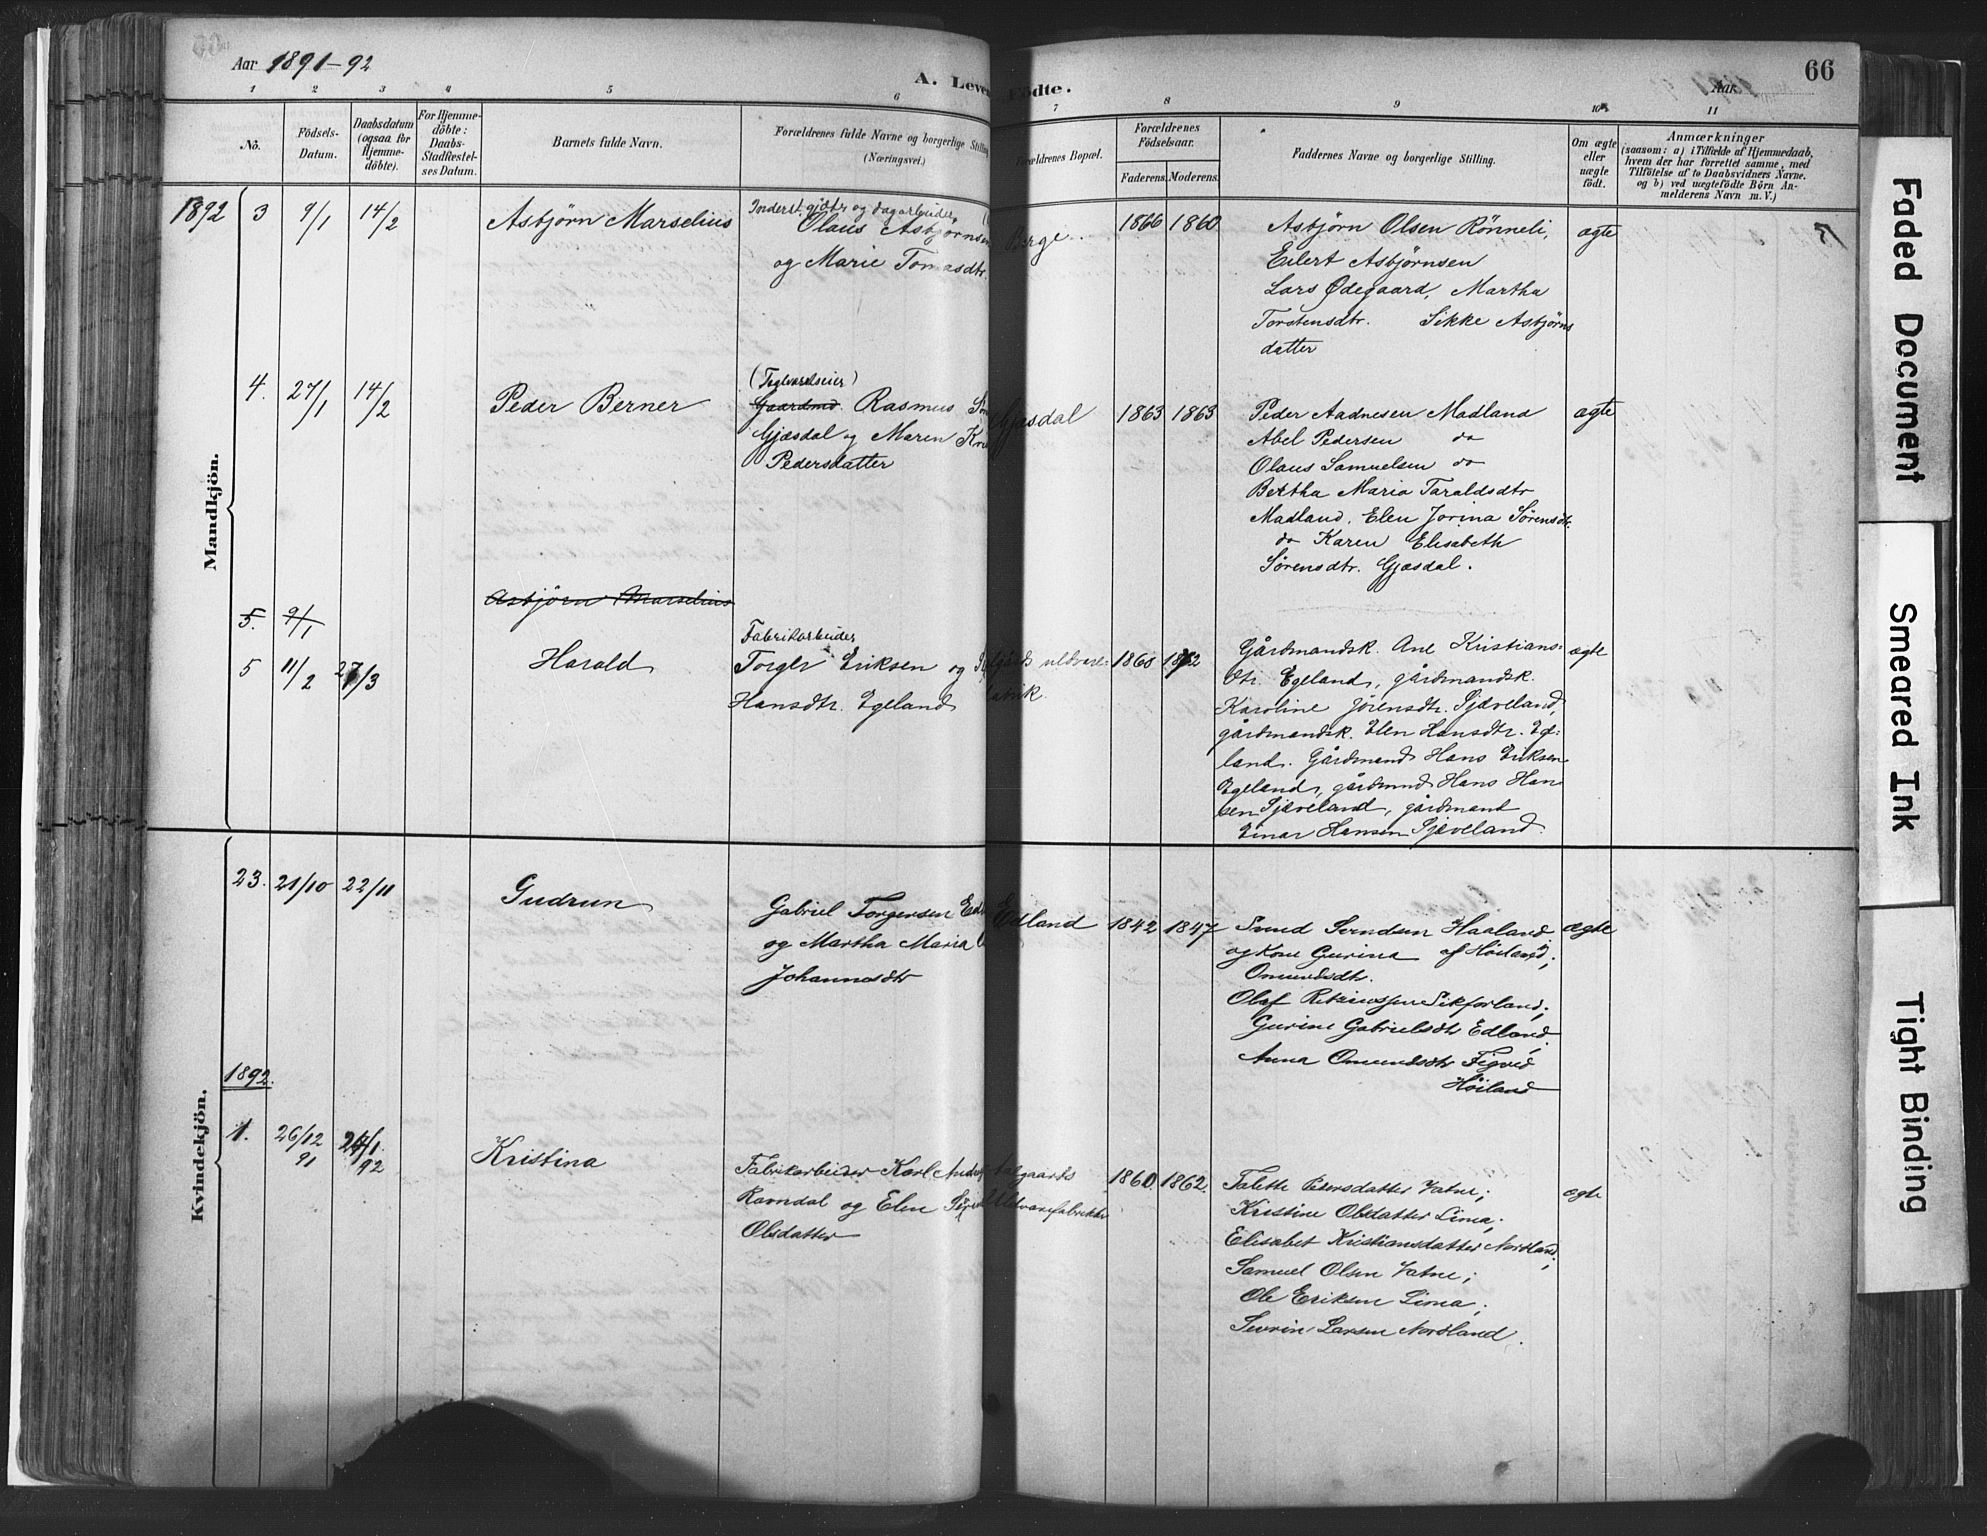 Aar 1891-92
A. Levende Födte.
Aar
66
1 2 3 4 5 6 7 8 9 10 11
No.
Födsels-
Datum.
Daabsdatum
(ogsaa for
Hjemme-
döbte).
For Hjemme-
döbte:
Daabs-
Stadfæstel-
ses Datum.
Barnets fulde Navn.
Forældrenes fulde Navne og borgerlige Stilling
(Næringsvei.)
Forældrenes Bopæl.
Forældrenes
Födselsaar.
Faderens. Moderens.
Faddernes Navne og borgerlige Stilling.
Om ægte
eller
uægte
født.
Anmærkninger
(saasom: a) i Tilfælde af Hjemmedaab,
hvem der har forrettet samme, med
Tilføielse af to Daabsvidners Navne,
og b) ved uægtefödte Börn An-
melderens Navn m. V.)
Mandkjön.
1892 3 9/1 14/2 Asbjörn Marselius
Inderst, gjæter og dagarbeider
Olaus Asbjørnsen
og Marie Tomasdtr.
Berge. 1866 1860
Asbjörn Olsen Rönneli,
Eilert Asbjørnsen
Lars Ødegaard, Martha
Torstensdtr. Sikke Asbjörns
datter
ægte
4. 27/1 14/2 Peder Berner
(Teglværkseier)
Gaardmd. Rasmus
Gjæsdal og Maren
Pedersdatter
Gjæsdal 1863 1863
Peder Aadnesen Madland
Abel Pedersen do
Olaus Samuelsen do
Bertha Maria Taraldsdtr
Madland, Elen Jorina Sørensdtr.
do Karen Elisabeth
Sørensdtr. Gjæsdal.
ægte
5. 9/1 Asbjörn Marselius
5 11/2 27/3 Harald
Fabrikarbeider
Torger Eriksen og
Hansdtr. Egeland
uldvare-
fabrik.
1860 1862
Gårdmandsk. Ane Kristians-
dtr. Egeland, gårdmandsk.
Karoline Jörensdtr. Sjæveland,
gårdmandsk. Elen Hansdtr. Ege-
land. Gårdmand Hans Eriksen
Egeland, gårdmand Hans Han-
sen Sjæveland, gårdmand
Einar Hansen Sjæveland.
ægte
Kvindekjön.
23. 21/10 22/11 Gudrun
Gabriel Torgersen
og Martha Maria
Johannesdtr
Edland 1842 1847
Svend Serndsen Haaland
og Kone Gurina af Höiland;
Omundsdtr.
Olaf
Gurine Gabrielsdtr Edland.
Anna Omundsdtr
Höiland
ægte
1892.
1. 26/12 91 24/1 92 Kristina
Fabrikarbeider Karl
Ravndal og Elen
Olsdatter
Aalgaards
Uldvarefabrikker
1860. 1862.
Talette Pedersdatter Vatne;
Kristine Olsdatter Lima;
Elisabet Kristiansdatter Nordland;
Samuel Olsen Vatne;
Ole Eriksen Lima;
Sevrin Larsen Nordland.
ægte
Faded Document
Smeared Ink
Tight Binding